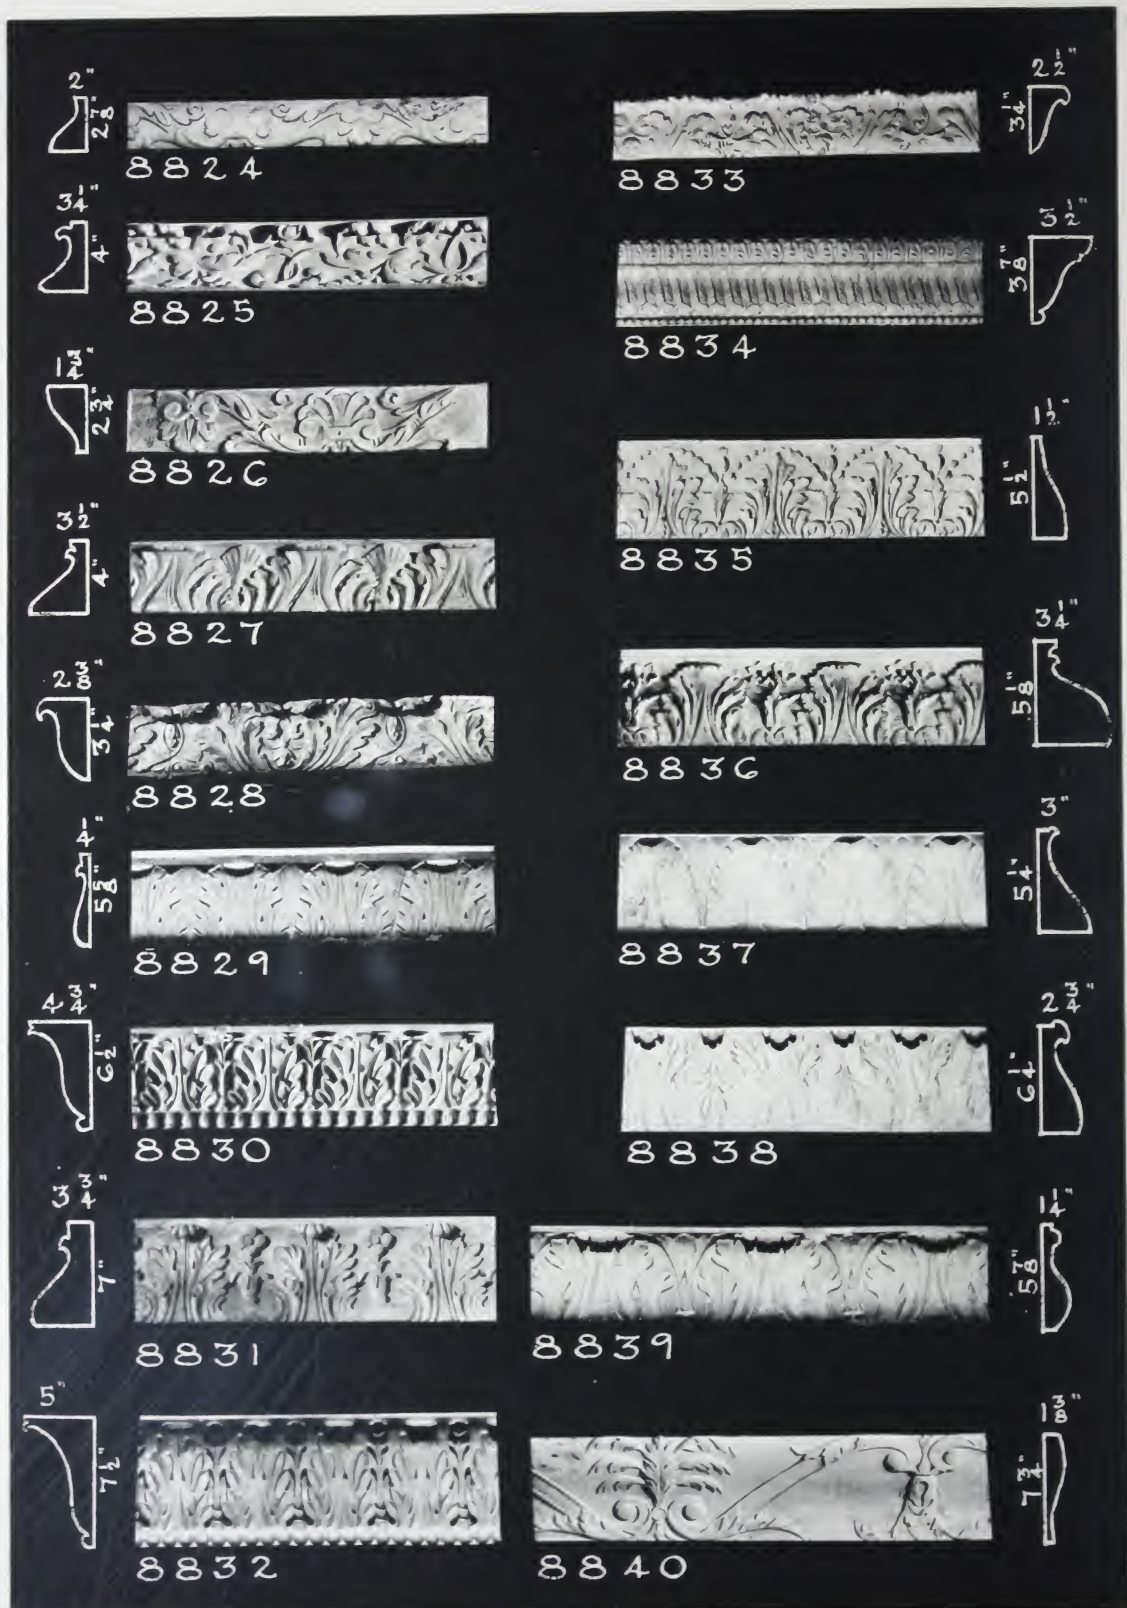 2"
2 7/8"
8824
3 1/4"
4"
8825
1 3/4"
2 3/4"
8826
3 1/2"
4"
8827
2 3/8"
3 1/4"
8828
5 5/8"
8829
4 3/4"
6 1/2"
8830
3 3/4"
7"
8831
5"
7 1/2"
8832
2 1/2"
3 1/4"
8833
3 1/2"
3 7/8"
8834
1 1/2"
5 1/2"
8835
3 1/4"
5 1/8"
8836
3"
5 1/4"
8837
2 3/4"
6 1/4"
8838
1 1/4"
5 7/8"
8839
1 3/8"
7 3/4"
8840